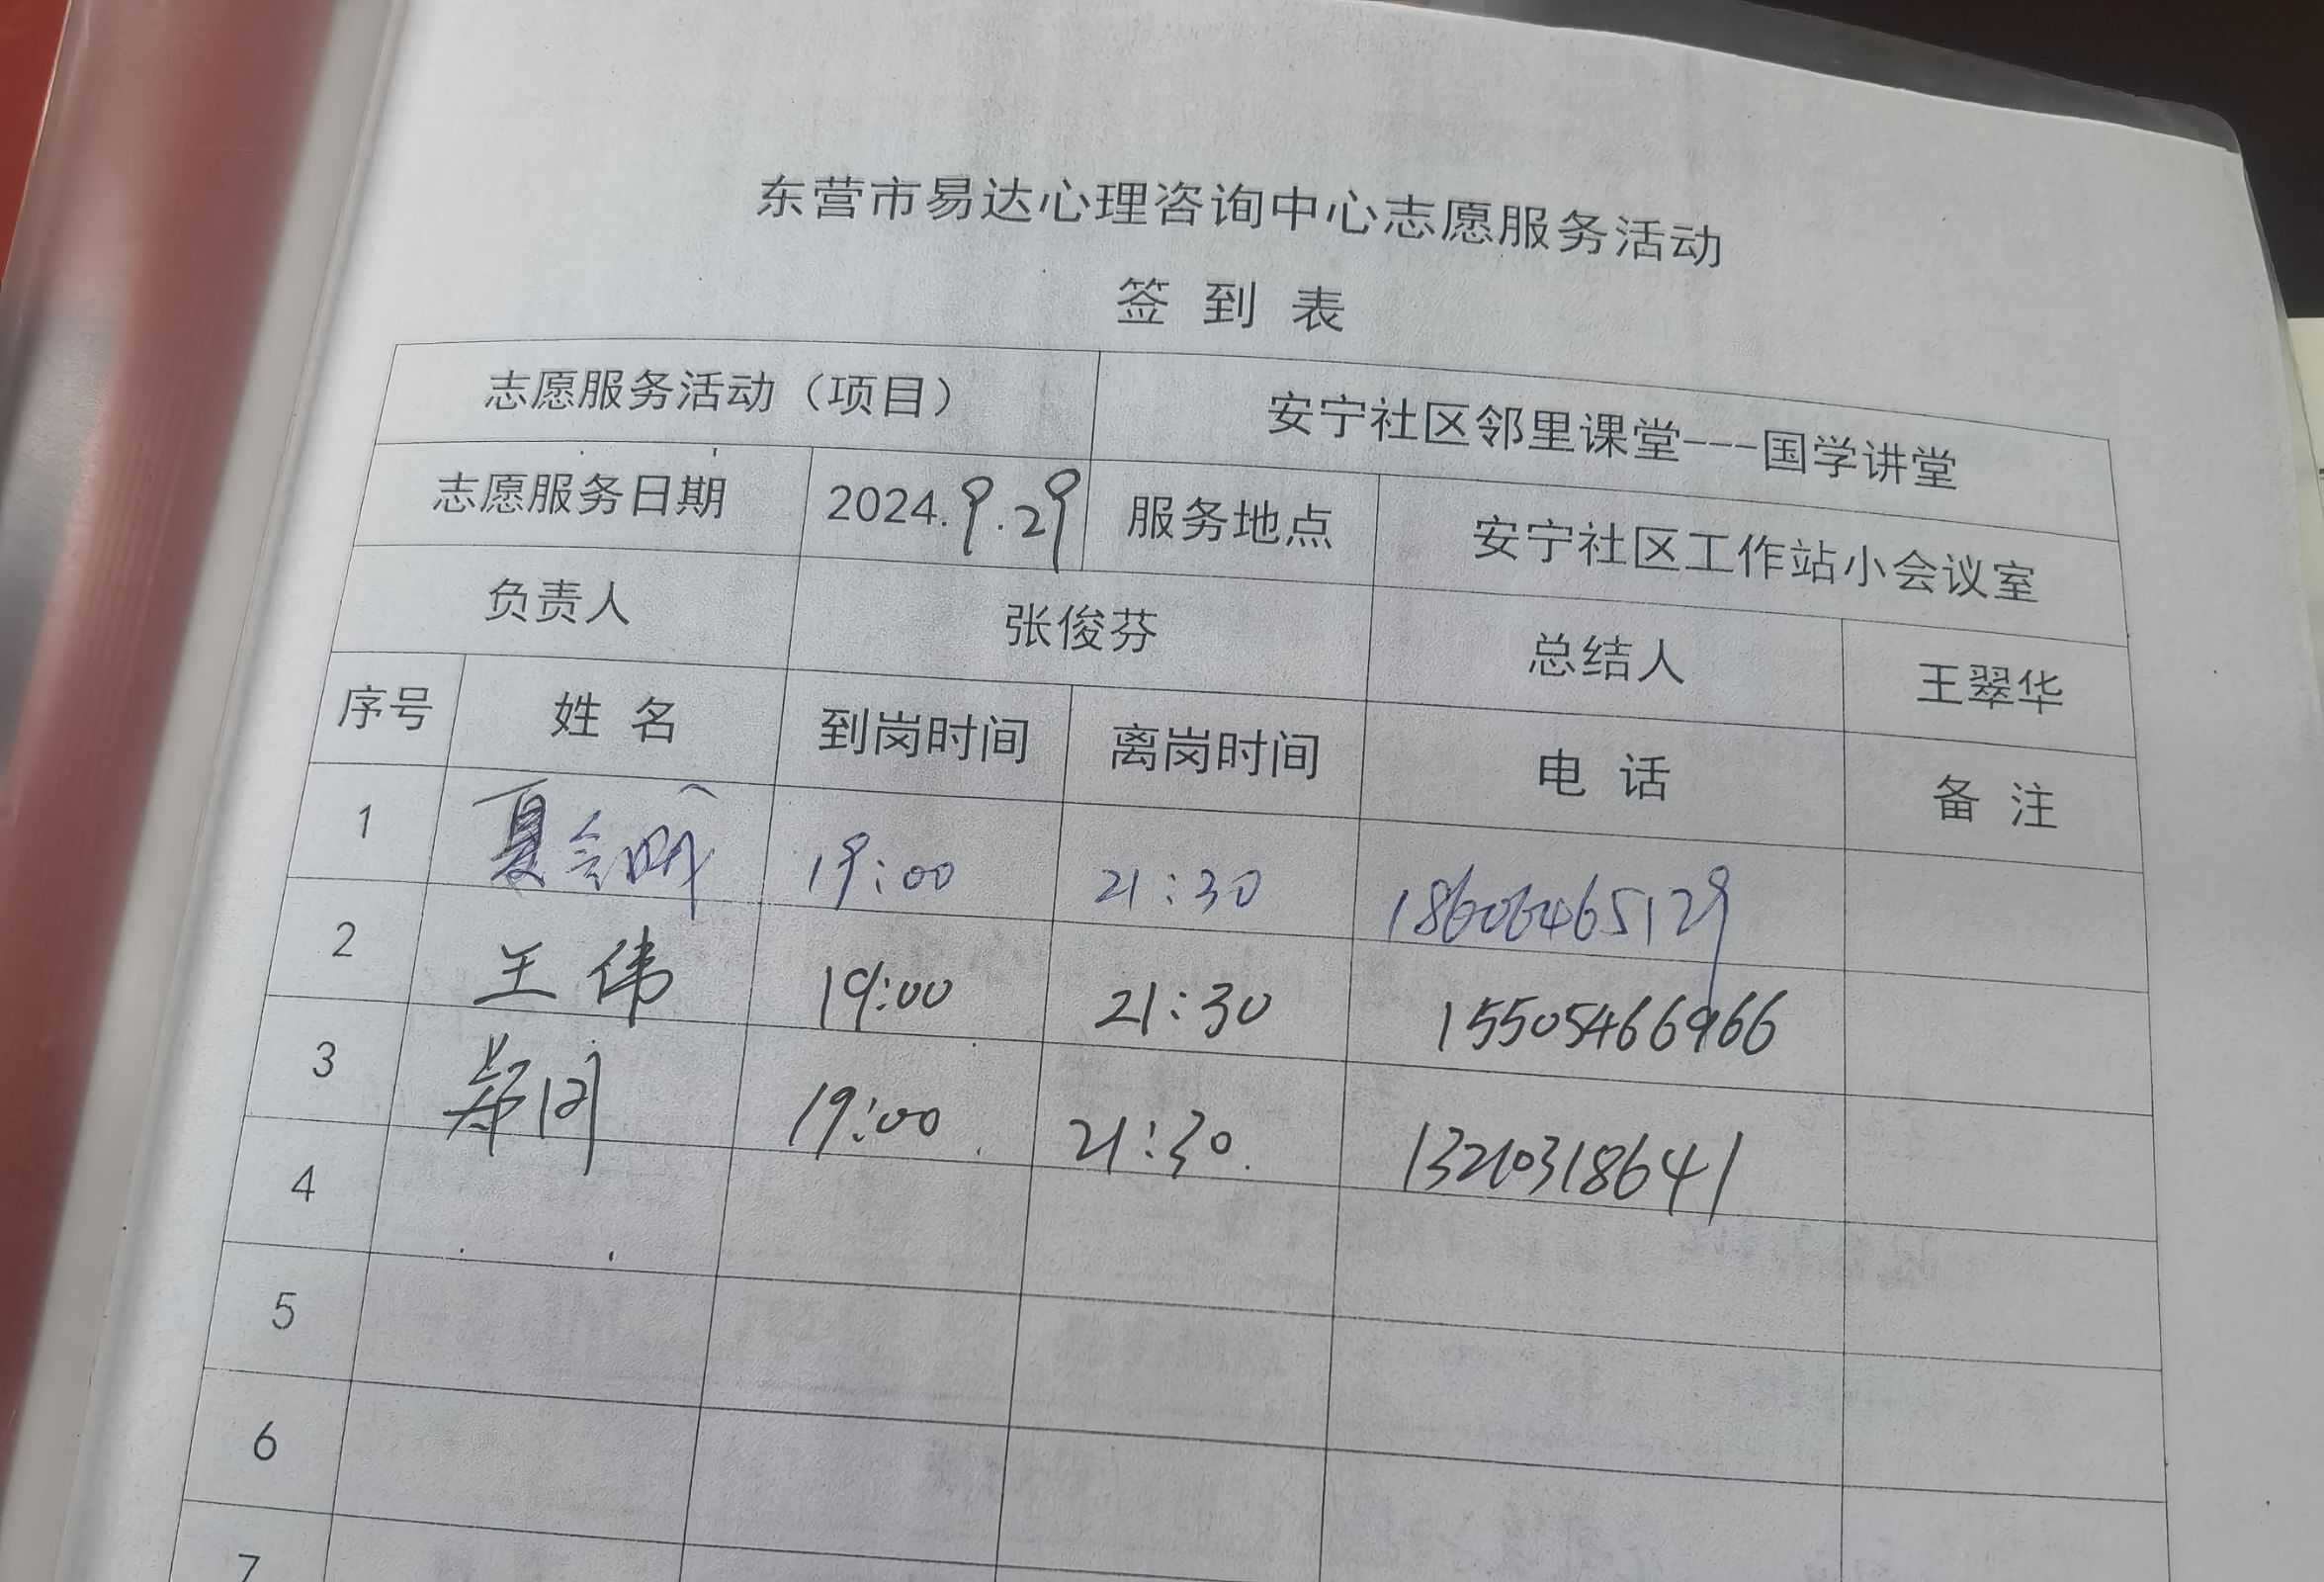 东营市易达心理咨询中心志愿服务活动
签 到 表
志愿服务活动（项目） 安宁社区邻里课堂---国学讲堂
志愿服务日期 2024.9.29 服务地点 安宁社区工作站小会议室
负责人 张俊芬 总结人 王翠华
序号 姓 名 到岗时间 离岗时间 电 话 备 注
1 夏 19:00 21:30 18606465129
2 王伟 19:00 21:30 15505466966
3 19:00 21:30. 13210318641
4
5
6
7